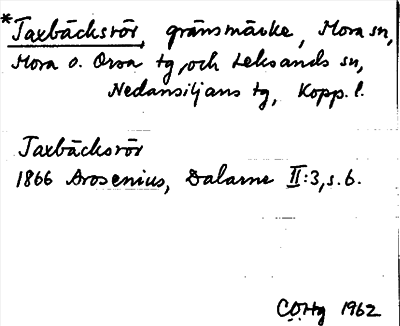 *Taxbäcksrör, gränsmärke, Mora sn,
Mora o. Orsa tg, och Leksands sn,
Nedansiljans tg, Kopp. l.
Taxbäcksrör
1866 Arosenius, Dalarne II:3, s. 6.
COHg 1962